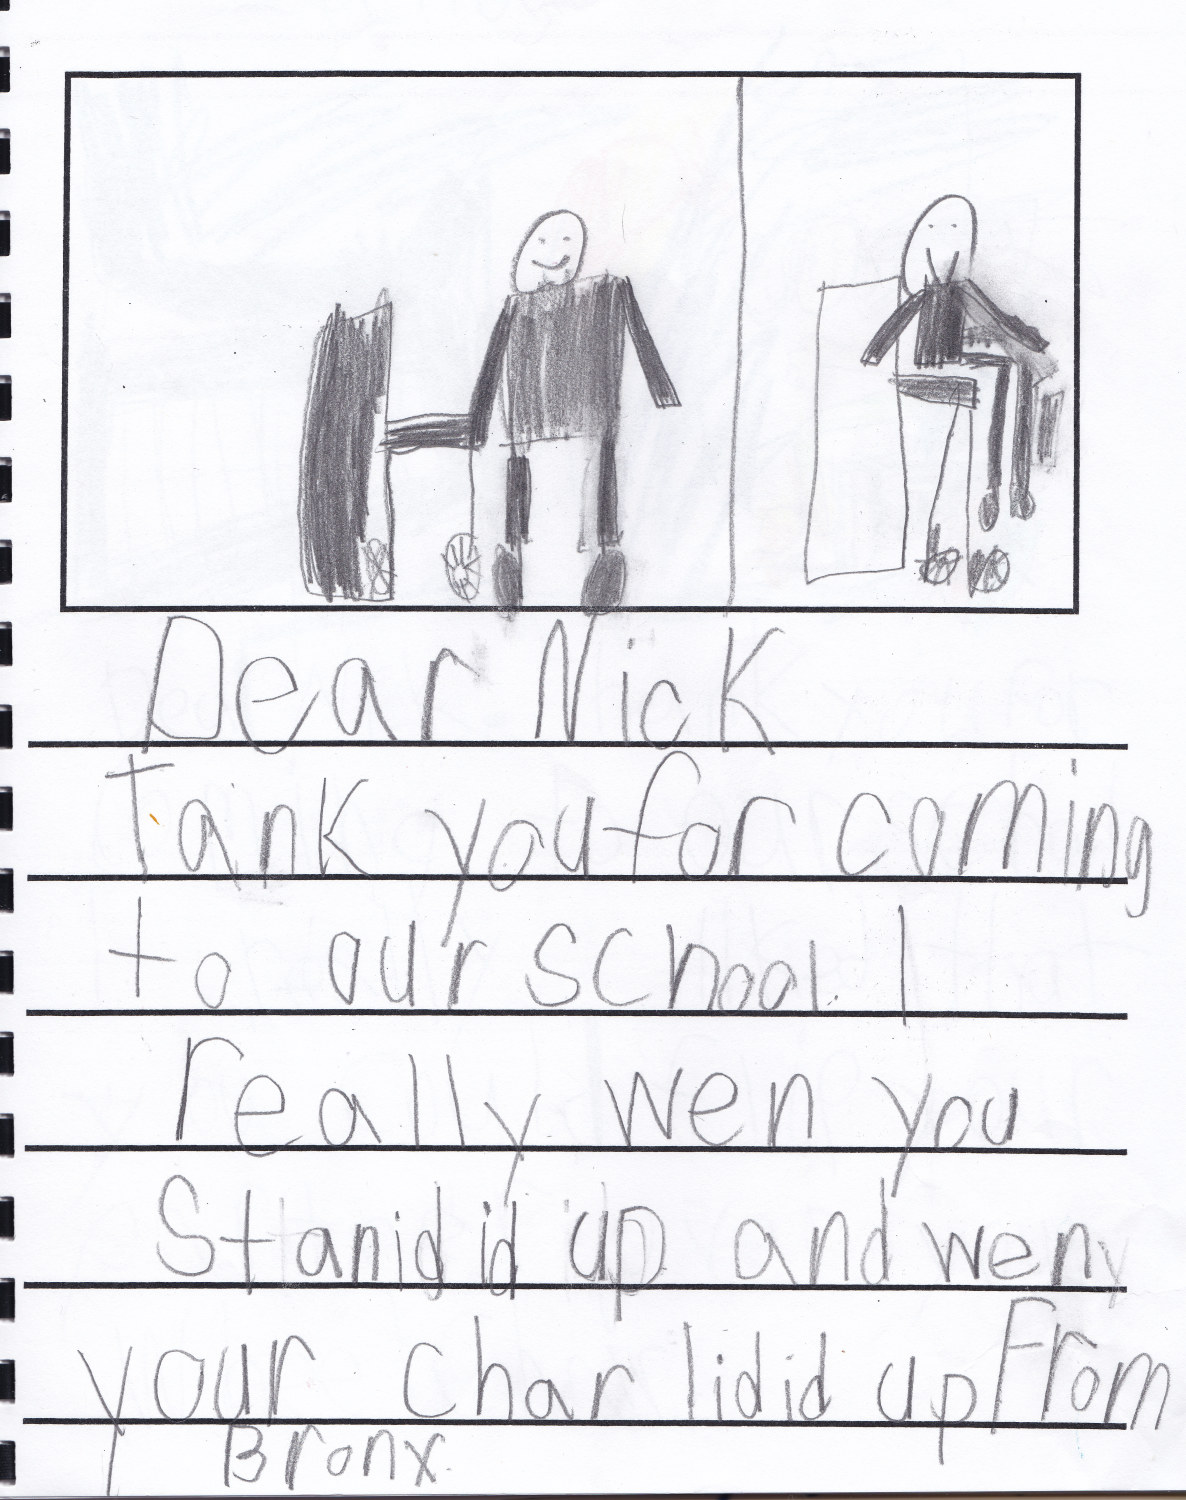 Dear Nick
Tank you for coming
to our school. I
really wen you
Stanidid up and wen
your char lidid up From
Bronx.